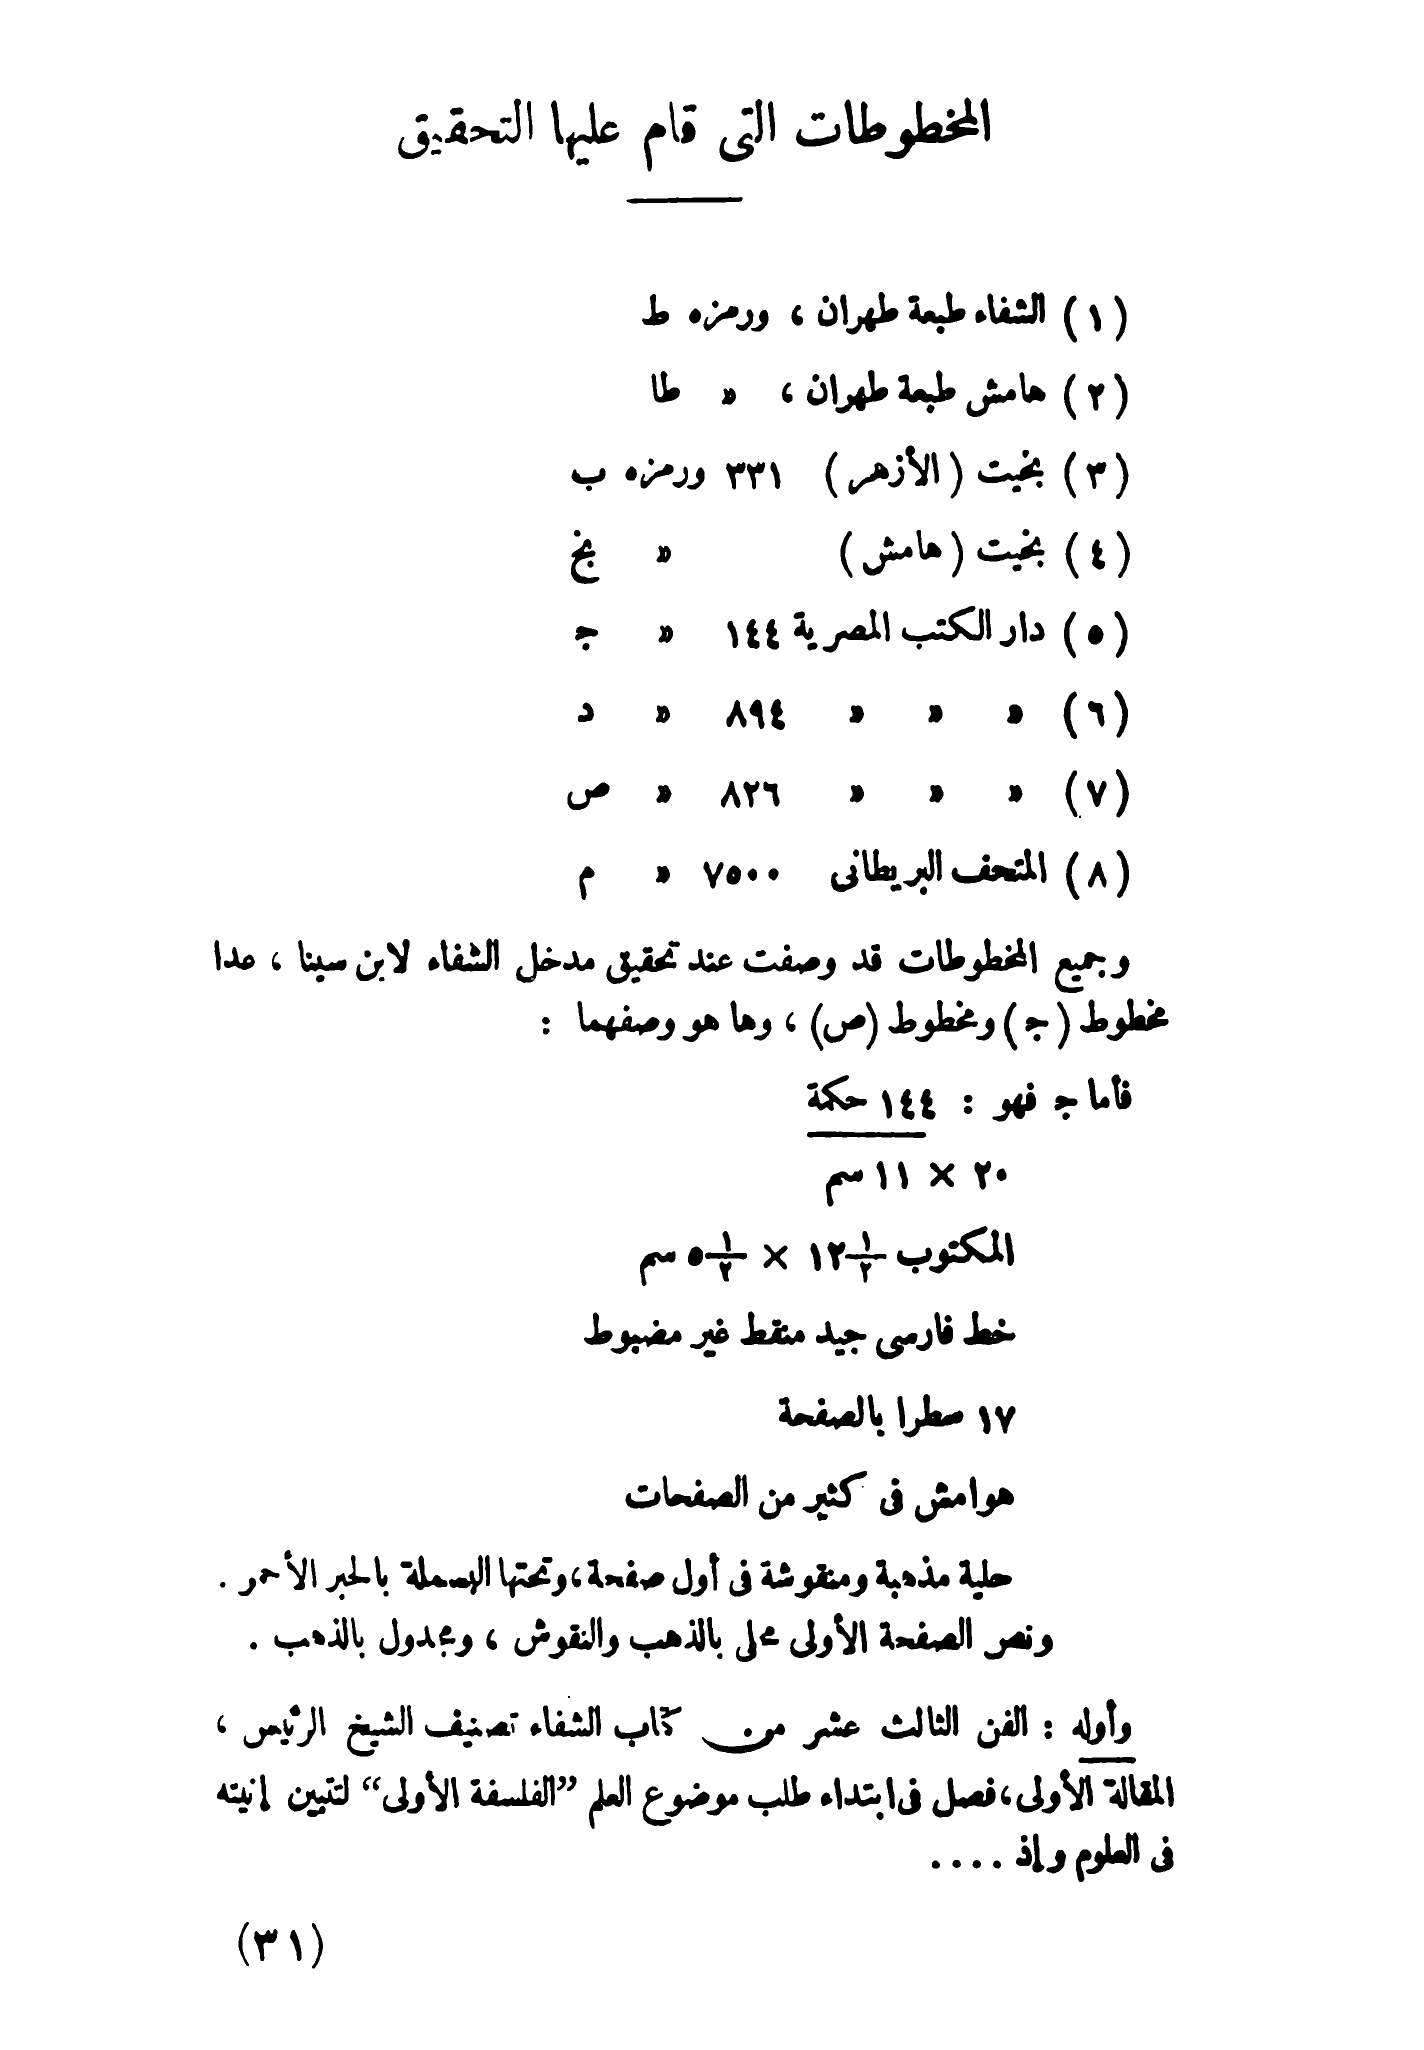 المخطوطات التى قام عليها التحقيق
(١) الشفاء طبعة طهران ، ورمزه ط
(٢) هامش طبعة طهران ، » طا
(٣) بخيت (الأزهر) ٣٣١ ورمزه ب
(٤) بخيت (هامش) » بخ
(٥) دار الكتب المصرية ١٤٤ » ج
(٦) » » » ٨٩٤ » د
(٧) » » » ٨٢٦ » ص
(٨) المتحف البريطانى ٧٥٠٠ » م
وجميع المخطوطات قد وصفت عند تحقيق مدخل الشفاء لابن سينا ، عدا
مخطوط (ج) ومخطوط (ص) ، وها هو وصفهما :
فأما ج فهو : ١٤٤ حكمة
٢٠ × ١١ سم
المكتوب ١٢½ × ٥½ سم
خط فارسى جيد منقط غير مضبوط
١٧ سطرا بالصفحة
هوامش فى كثير من الصفحات
حلية مذهبة ومنقوشة فى أول صفحة، وتحتها البسملة بالحبر الأحمر .
ونص الصفحة الأولى محلى بالذهب والنقوش ، ومجدول بالذهب .
وأوله : الفن الثالث عشر من كتاب الشفاء تصنيف الشيخ الرئيس ،
المقالة الأولى، فصل فى ابتداء طلب موضوع العلم ”الفلسفة الأولى“ لتتبين إنيته
فى العلوم وإذ ....
(٣١)